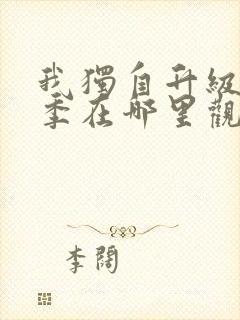 我獨自升級
季在哪里觀
李闊